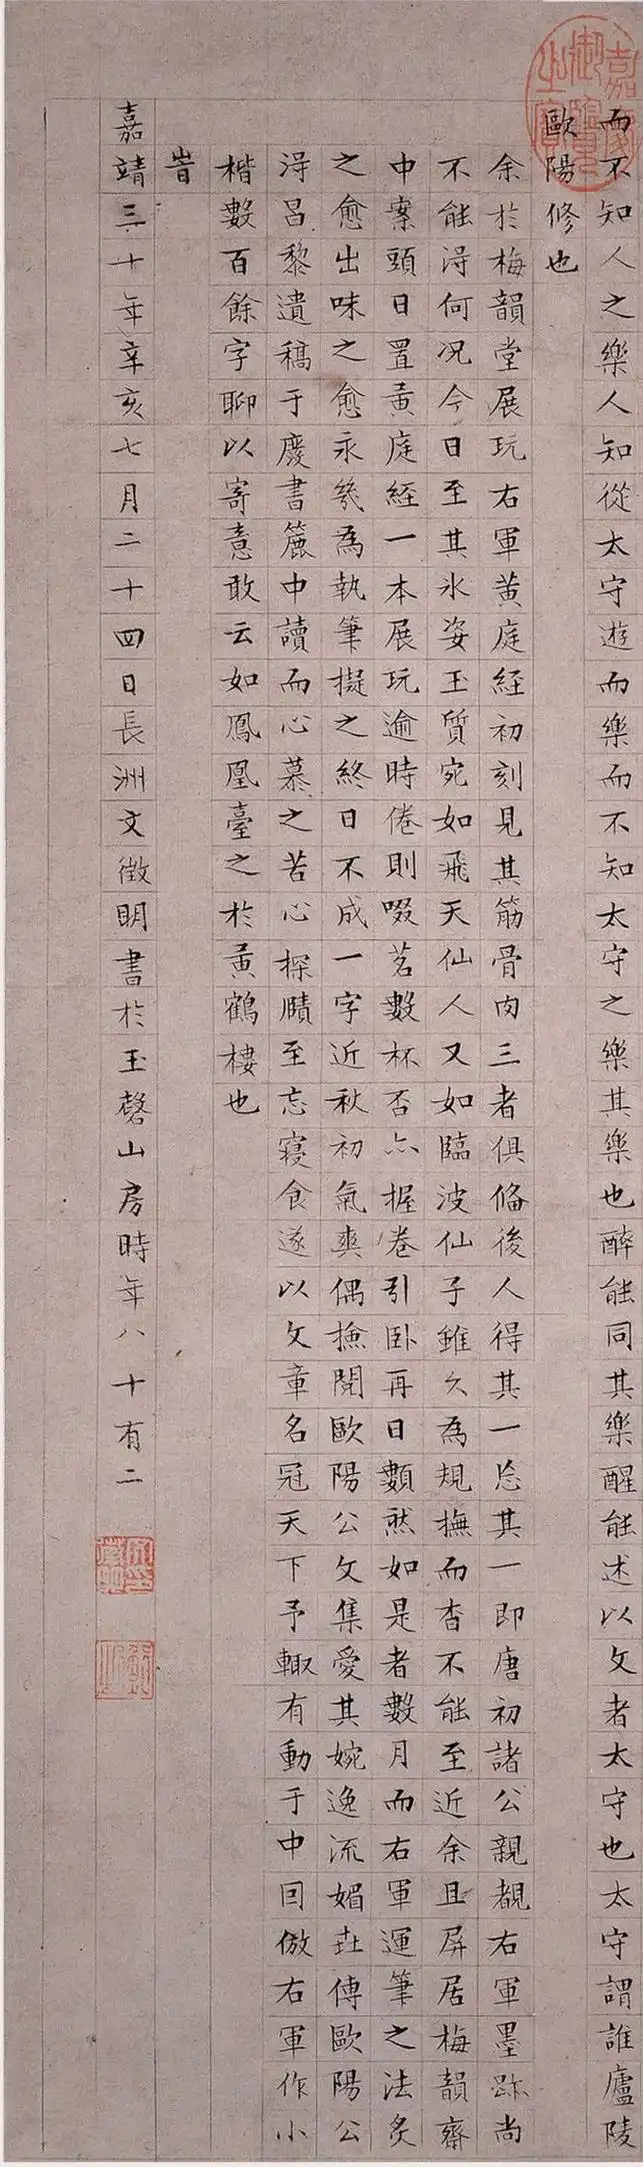 而不知人之樂人知從太守遊而樂而不知太守之樂其樂也醉能同其樂醒能述以文者太守也太守謂誰廬陵
歐陽修也
余於梅韻堂展玩右軍黄庭經初刻見其筋骨肉三者俱備後人得其一忘其一即唐初諸公親覩右軍墨跡尚
不能淂何况今日至其氷姿玉質宛如飛天仙人又如臨波仙子雖久為規撫而杳不能至近余且屏居梅韻齋
中案頭日置黄庭經一本展玩逾時倦則啜茗數杯否亦握卷引卧再日數然如是者數月而右軍運筆之法炙
之愈出味之愈永幾為執筆擬之終日不成一字近秋初氣爽偶撿閱歐陽公文集愛其婉逸流媚丗傳歐陽公
淂昌黎遺稿于廢書簏中讀而心慕之苦心探賾至忘寢食遂以文章名冠天下予輙有動于中囙倣右軍作小
楷數百餘字聊以寄意敢云如鳳凰臺之於黄鶴樓也
旹
嘉靖三十年辛亥七月二十四日長洲文徵明書於玉磬山房時年八十有二
嘉慶御覽之寶